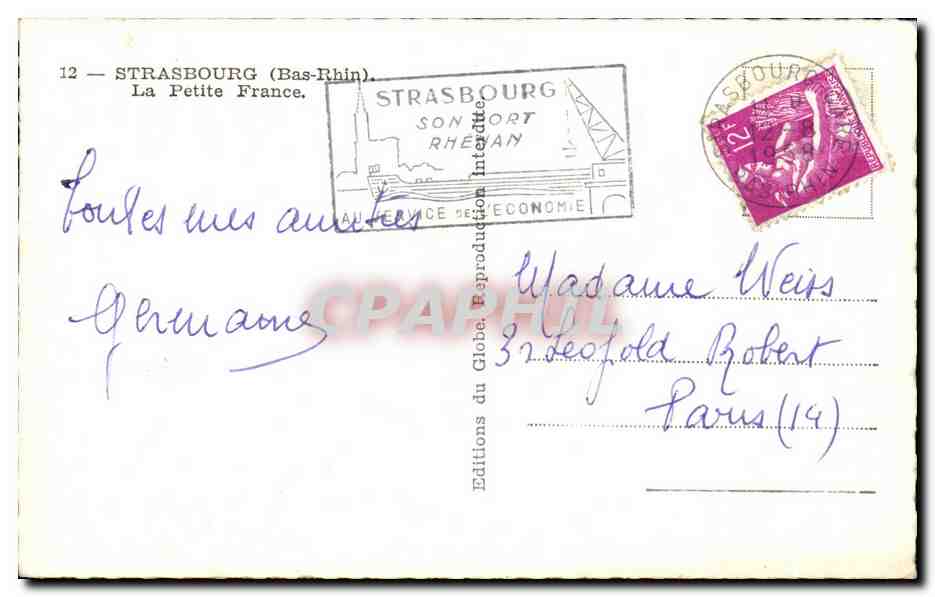 12 — STRASBOURG (Bas-Rhin).
La Petite France.
STRASBOURG
SON PORT
RHÉNAN
AU SERVICE DE L'ECONOMIE
STRASBOURG GARE
2 - 8
1958
BAS RHIN
12F
Toutes mes amitiés
Germaine
Editions du Globe. Reproduction interdite.
Madame Weiss
3 r Leopold Robert
Paris (14)
CPAPHIL